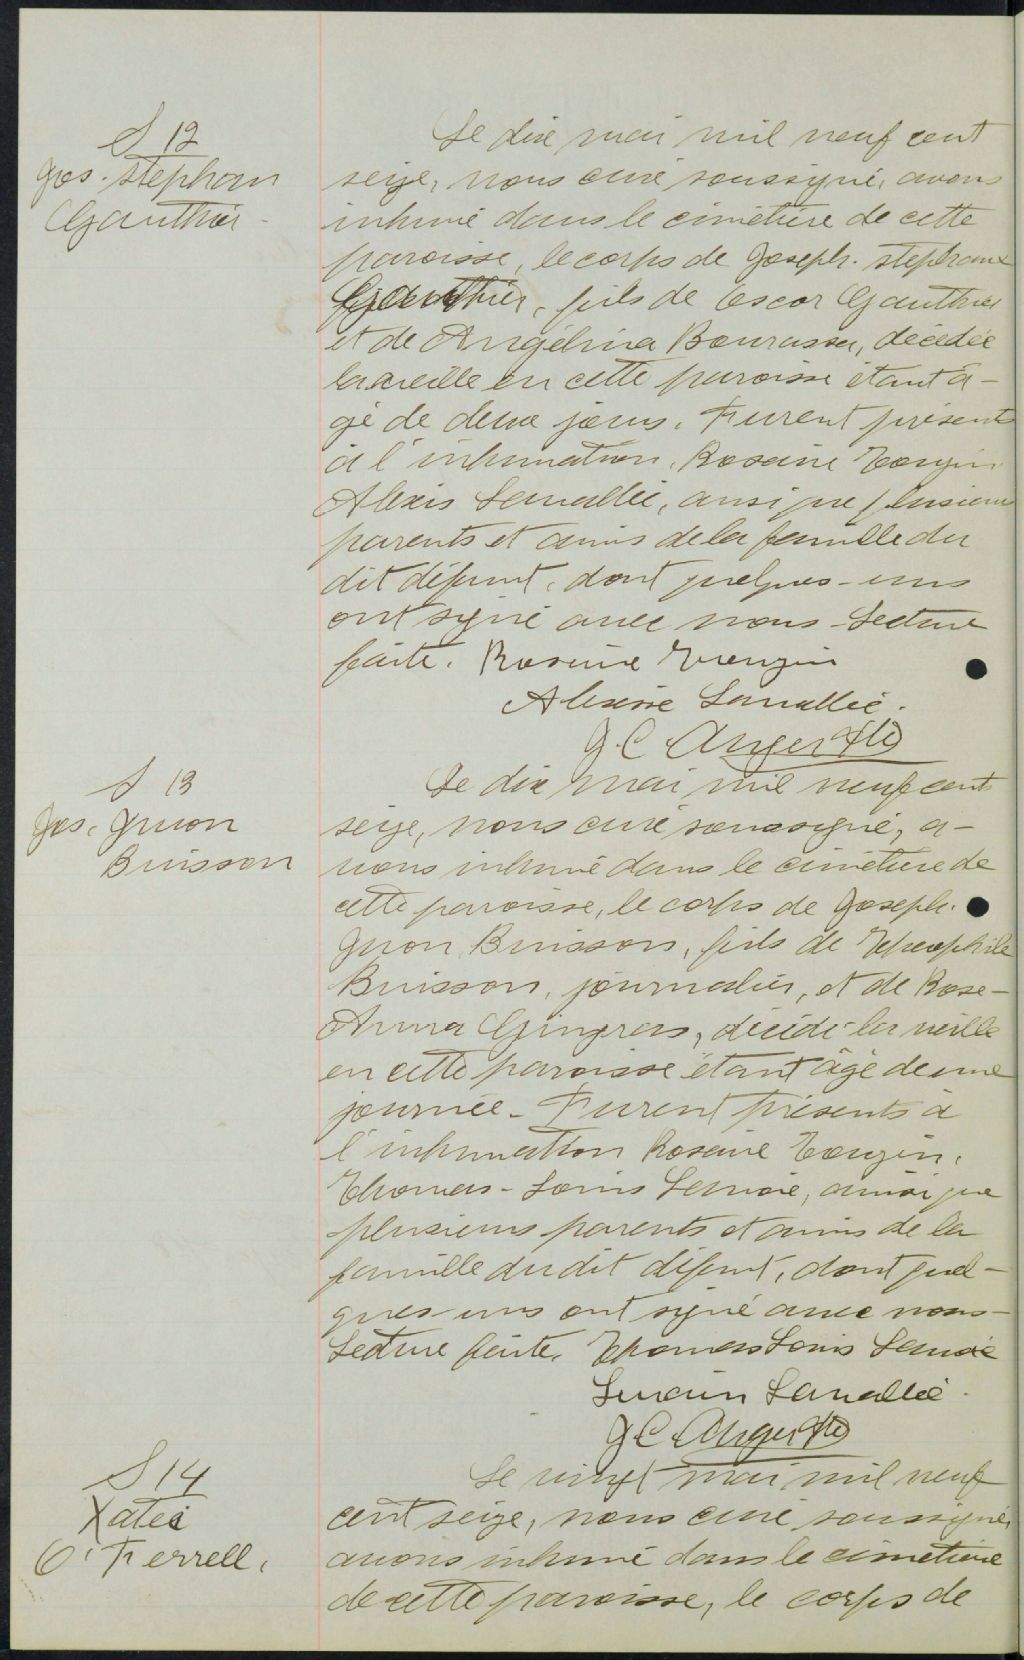 S 12
Jos. Stephan
Gauthier
Le dix mai mil neuf cent
seize, nous curé soussigné, avons
inhumé dans le cimetière de cette
paroisse, le corps de Joseph. Stephane
Gauthier, fils de Oscar Gauthier
et de Angélina Bourassa, décédée
la veille en cette paroisse étant â-
gé de deux jours. Furent présents
à l'inhumation, Rosaire
Alexis Lavallée, ainsi que plusieurs
parents et amis de la famille du
dit défunt, dont quelques-uns
ont signé avec nous - Lecture
faite. Rosaire
Lavallée.
J. C. Anger Ptre
S 13
Jos. Juon
Buisson
Le dix mai mil neuf cent
seize, nous curé soussigné, a-
vons inhumé dans le cimetière de
cette paroisse, le corps de Joseph.
Juon Buisson, fils de Théophile
Buisson, journalier, et de Rose-
Anna Gingras, décédé la veille
en cette paroisse étant âgé de une
journée - Furent présents à
l'inhumation Rosaire
Thomas-Louis Lemoie, ainsi que
plusieurs parents et amis de la
famille du dit défunt, dont quel-
ques-uns ont signé avec nous -
Lecture faite. Thomas Louis
Lavallée.
J C Anger Ptre
S 14
Katei
O'Ferrell.
Le vingt mai mil neuf
cent seize, nous curé soussigné,
avons inhumé dans le cimetière
de cette paroisse, le corps de